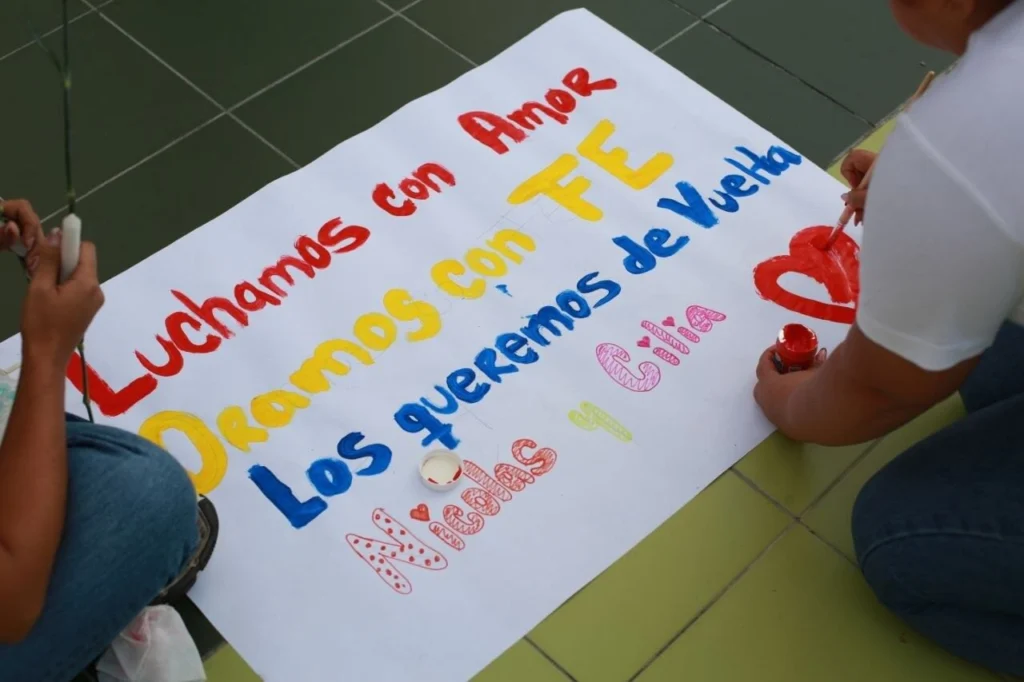 Luchamos con Amor
Oramos con FE
Los queremos de Vuelta
Nicolas y Clia